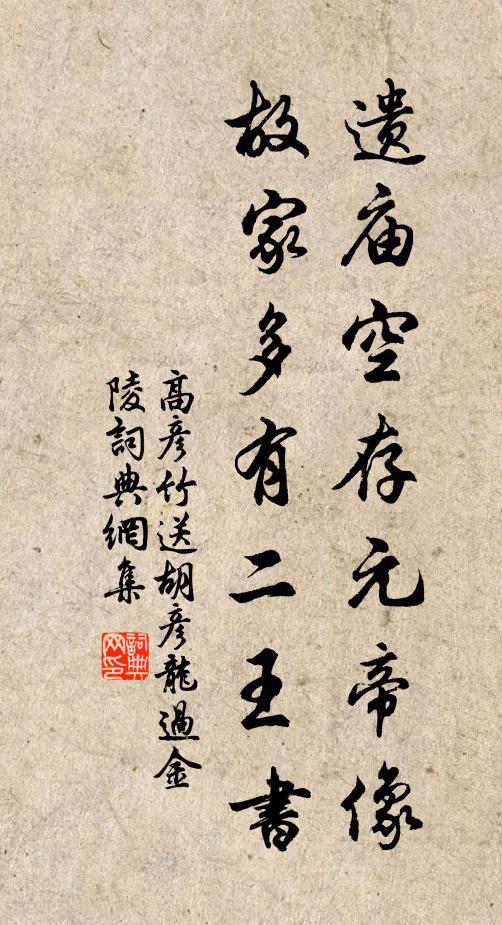 遗庙空存元帝像
故家多有二王書
高彦竹送胡彦龍過金
陵詞典網集
詞典
网印